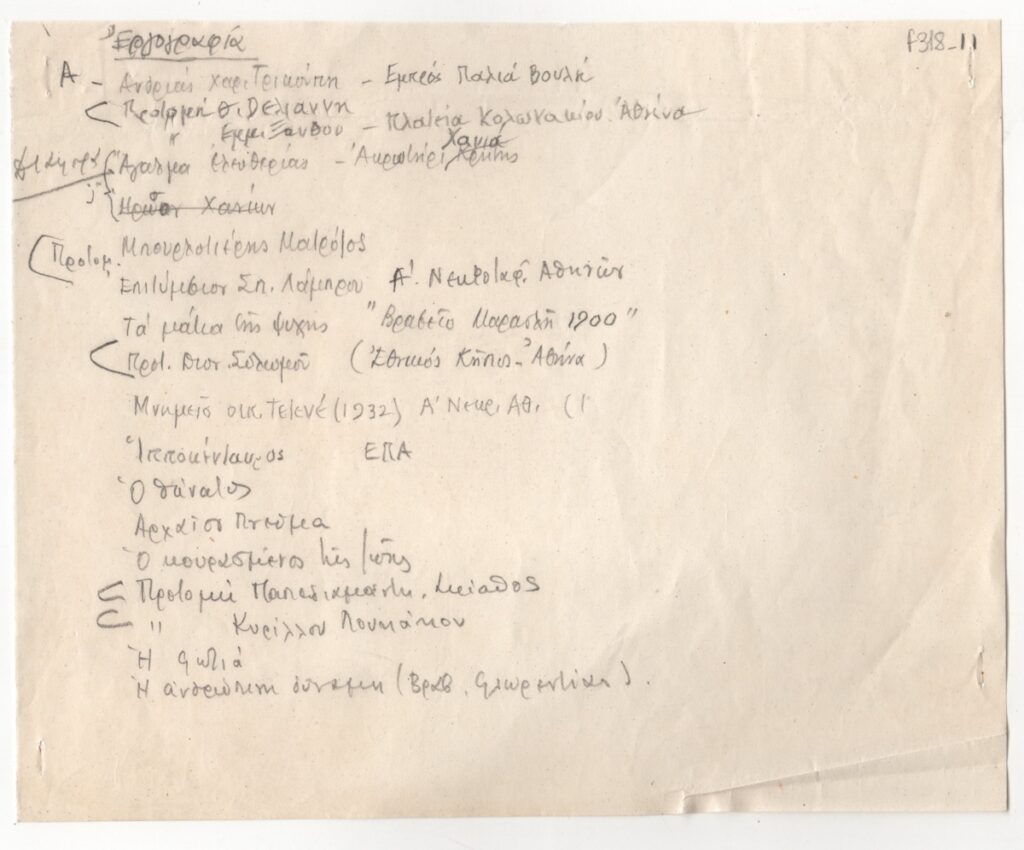 Ἐργογραφία
f318-11
Α - Ανδριάς Χαρ. Τρικούπη - Εμπρός Παλιά Βουλή
Προτομή Θ. Δελιαννη
" Εμμ. Ξανθου - Πλατεία Κολωνακίου. Ἀθήνα
Ἄγαλμα ἐλευθερίας - Ἀκρωτήρι Χανιά Κρήτης
Ηρῶον Χανίων
Προτομ. Μπουρλοτιέρης Ματρόζος
Ἐπιτύμβιον Σπ. Λάμπρου Α'. Νεκροταφ. Αθηνῶν
Τά μάτια τῆς ψυχῆς "Βραβεῖο Μαρασλῆ 1900"
Προτ. Διον. Σολωμοῦ (Ἐθνικός Κῆπος - Ἀθήνα)
Μνημεῖο οικ. Τελενέ (1932) Α' Νεκρ. Αθ. (1
Ἱπποκένταυρος ΕΠΑ
Ὁ θάνατος
Αρχαῖον Πνεῦμα
Ὁ κουρασμένος τῆς ζωῆς
Προτομή Παπαδιαμάντη. Σκίαθος
" Κυρίλλου Λουκάρεως
Ἡ φωτιά
Ἡ ἀνθρώπινη δύναμη (Βραβ. Φλωρεντίας).